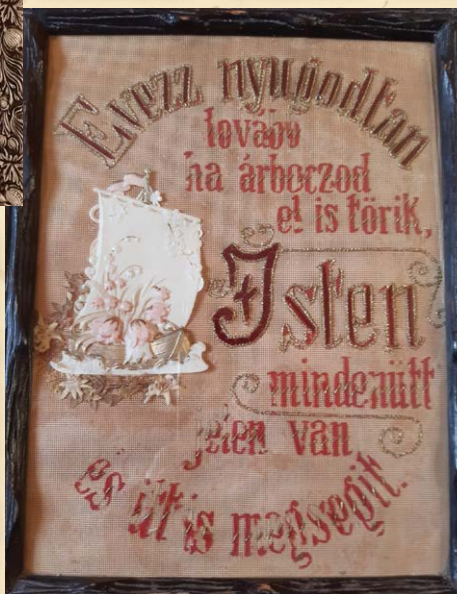 Evezz nyugodtan
tovább
ha árboczod
el is törik,
Isten
mindenütt
jelen van
és itt is megsegit.